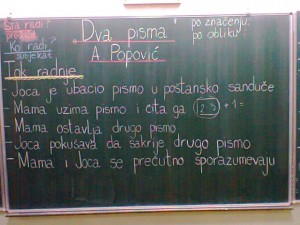 Šta radi?
predikat
Ko radi?
subjekat
"Dva pisma"
A. Popović
po značenju:
po obliku:
Tok radnje
- Joca je ubacio pismo u poštansko sanduče
- Mama uzima pismo i čita ga 2. 3 + 1 =
- Mama ostavlja drugo pismo
- Joca pokušava da sakrije drugo pismo
- Mama i Joca se prećutno sporazumevaju